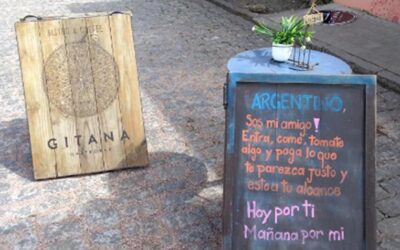 GITANA
ARGENTINO,
Sos mi amigo!
Entra, comé, tomate
algo y paga lo que
te parezca justo y
este a tu alcance
Hoy por ti
Mañana por mi